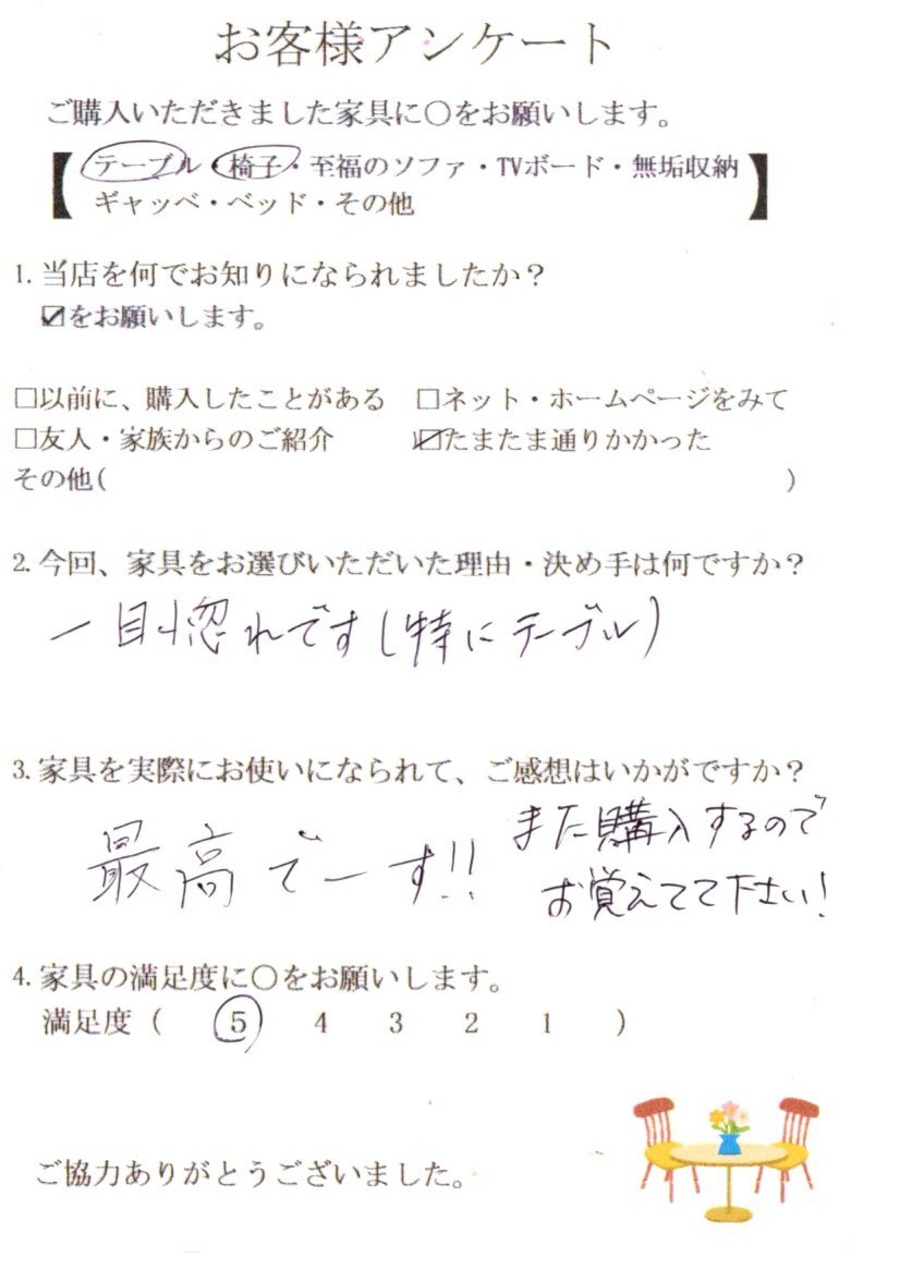 お客様アンケート
ご購入いただきました家具に〇をお願いします。
【テーブル・椅子・至福のソファ・TVボード・無垢収納
ギャッベ・ベッド・その他】
1. 当店を何でお知りになられましたか？
☑をお願いします。
□以前に、購入したことがある　□ネット・ホームページをみて
□友人・家族からのご紹介　☑たまたま通りかかった
その他(　　　　　　　　　　)
2. 今回、家具をお選びいただいた理由・決め手は何ですか？
一目惚れです(特にテーブル)
3. 家具を実際にお使いになられて、ご感想はいかがですか？
最高でーす!!
また購入するので
お覚えてて下さい!
4. 家具の満足度に〇をお願いします。
満足度（　5　4　3　2　1　）
ご協力ありがとうございました。